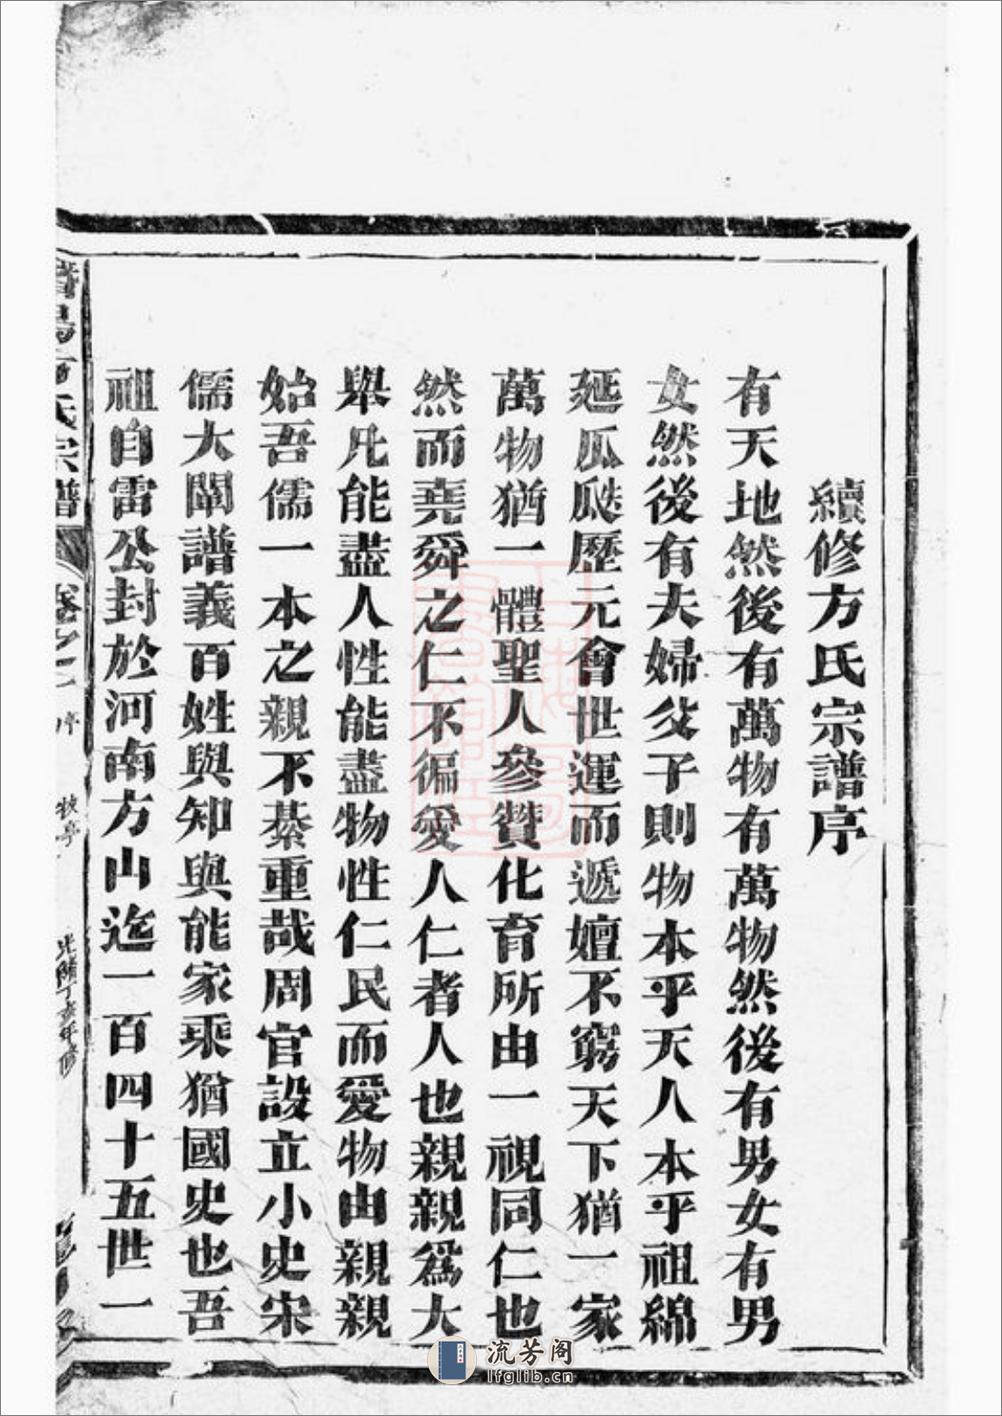 續修方氏宗譜序
有天地然後有萬物有萬物然後有男女有男
女然後有夫婦父子則物本乎天人本乎祖綿
延瓜瓞歷元會世運而遞嬗不窮天下猶一家
萬物猶一體聖人參贊化育所由一視同仁也
然而堯舜之仁不徧愛人仁者人也親親爲大
舉凡能盡人性能盡物性仁民而愛物由親親
始吾儒一本之親不綦重哉周官設立小史宋
儒大闡譜義百姓與知與能家乘猶國史也吾
祖自雷公封於河南方山迄一百四十五世一
氏宗譜 卷之一 序 光緒丁亥年修
流芳阁
lfglib.cn